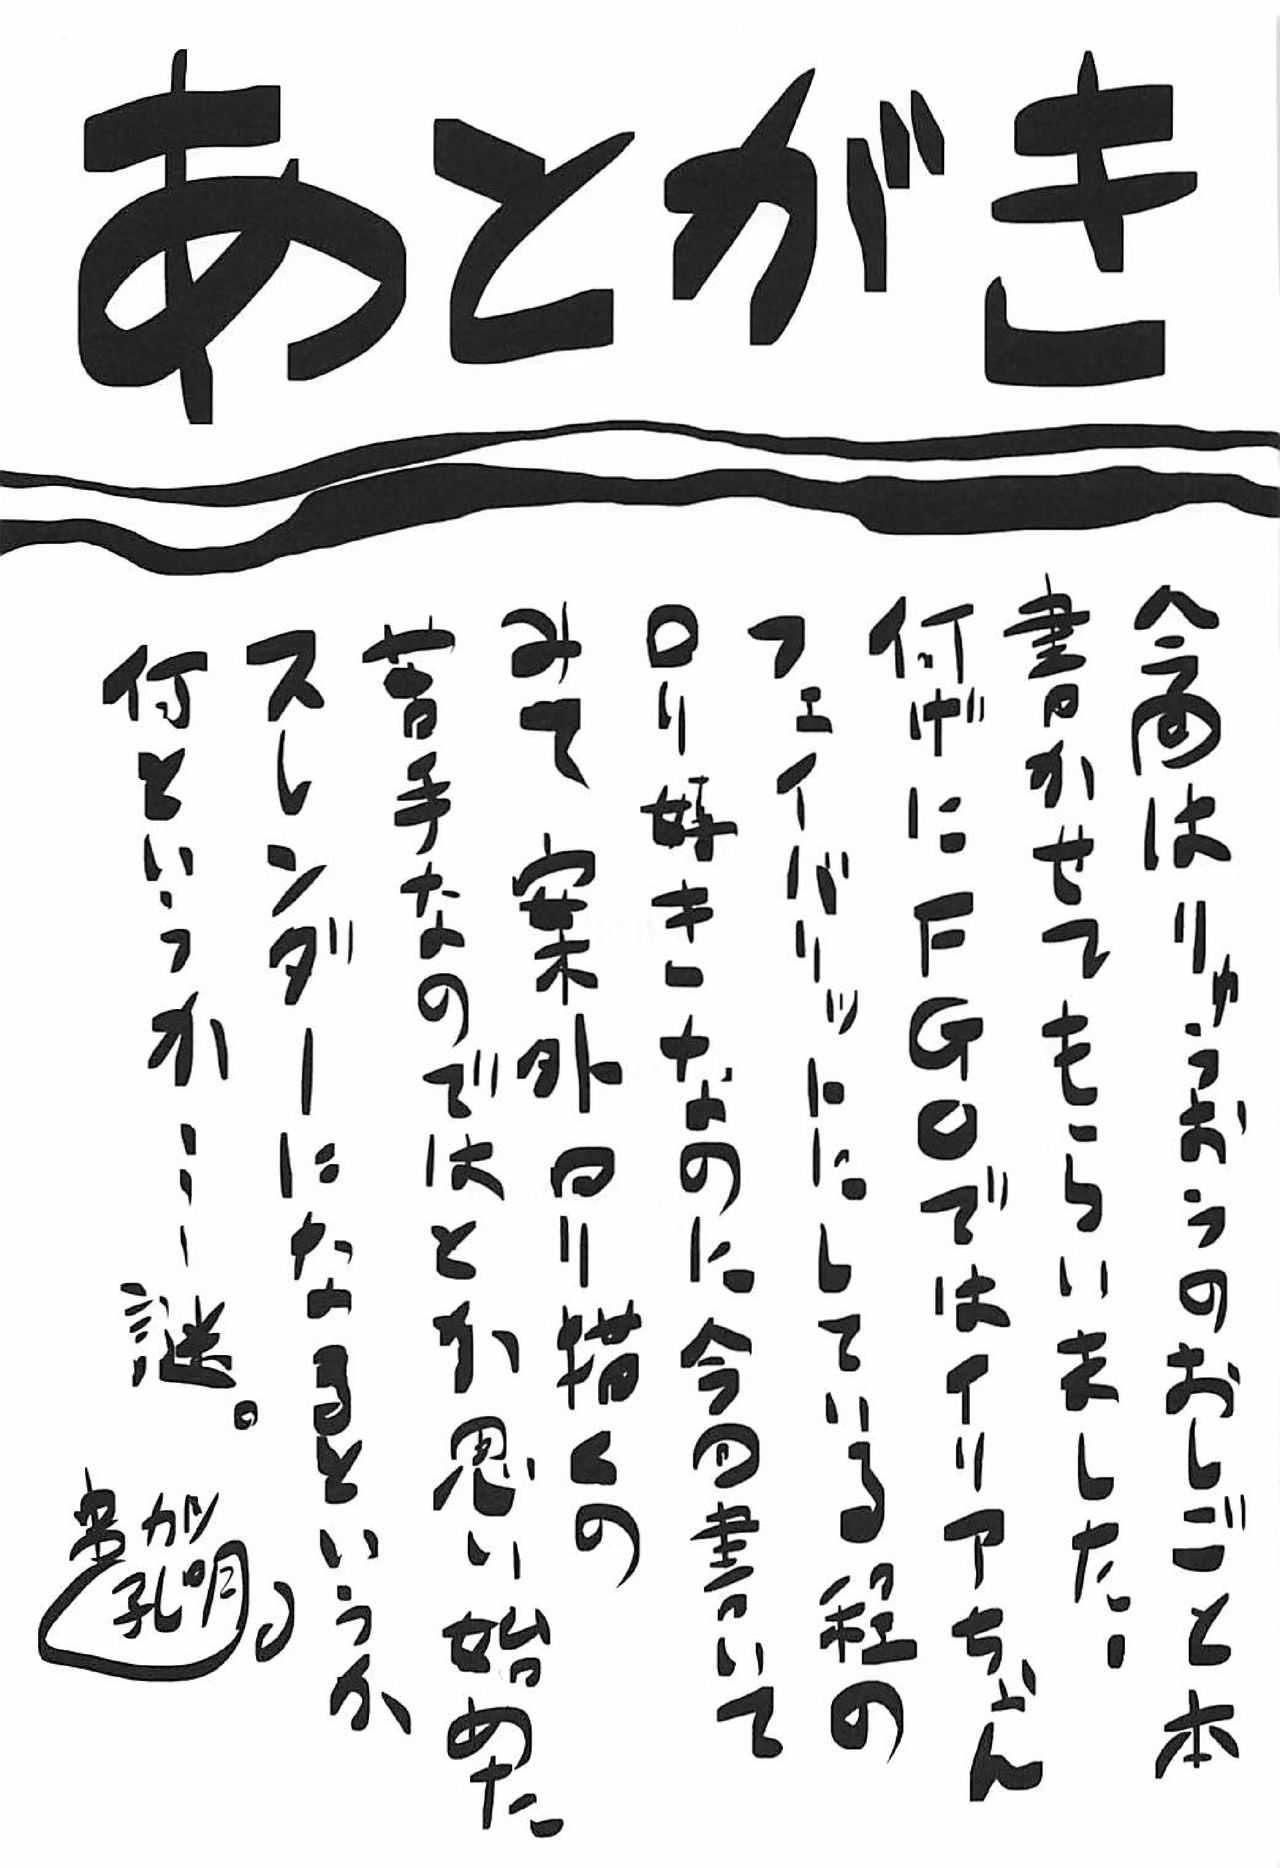 あとがき
今回はりゅうおうのおしごと本
書かせてもらいました!
何げにFGOではイリアちゃん
フェイバリットにしている程の
ロリ好きなのに今回書いて
みて 案外ロリ描くの
苦手なのではとか思い始めた
スレンダーになるというか
何というか…謎。
孔明